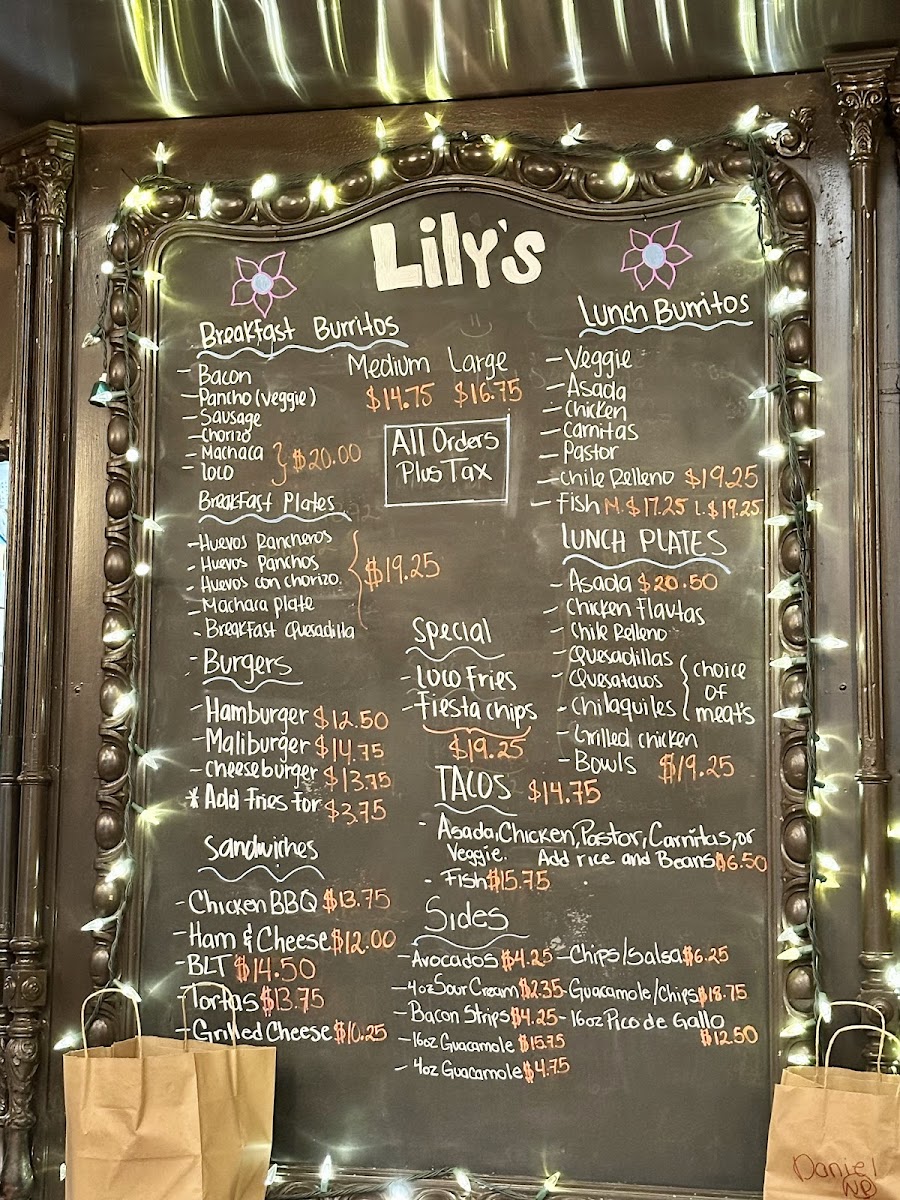 Lily's
Breakfast Burritos
Medium Large
$14.75 $16.75
- Bacon
- Pancho (veggie)
- Sausage
- Chorizo
- Machaca
- Loco
} $20.00
All Orders
Plus Tax
Breakfast Plates
- Huevos Rancheros
- Huevos Panchos
- Huevos con chorizo.
- Machaca plate
- Breakfast Quesadilla
$19.25
- Burgers
- Hamburger $12.50
- Maliburger $14.75
- Cheeseburger $13.75
* Add Fries For $3.75
Sandwiches
- Chicken BBQ $13.75
- Ham & Cheese $12.00
- BLT $14.50
- Tortas $13.75
- Grilled Cheese $10.25
Lunch Burritos
- Veggie
- Asada
- Chicken
- Carnitas
- Pastor
- Chile Relleno $19.25
- Fish M. $17.25 L. $19.25
LUNCH PLATES
- Asada $20.50
- Chicken Flautas
- Chile Relleno
- Quesadillas
- Quesatacos
- Chilaquiles
choice
of
meats
- Grilled chicken
- Bowls $19.25
Special
- Loco Fries
- Fiesta chips
$19.25
TACOS $14.75
- Asada, Chicken, Pastor, Carnitas, or
Veggie. Add rice and Beans $6.50
- Fish $15.75
Sides
- Avocados $4.25 - Chips/Salsa $6.25
- 4oz Sour Cream $2.35 - Guacamole/Chips $18.75
- Bacon Strips $4.25 - 16oz Pico de Gallo
$12.50
- 16oz Guacamole $15.75
- 4oz Guacamole $4.75
Daniel